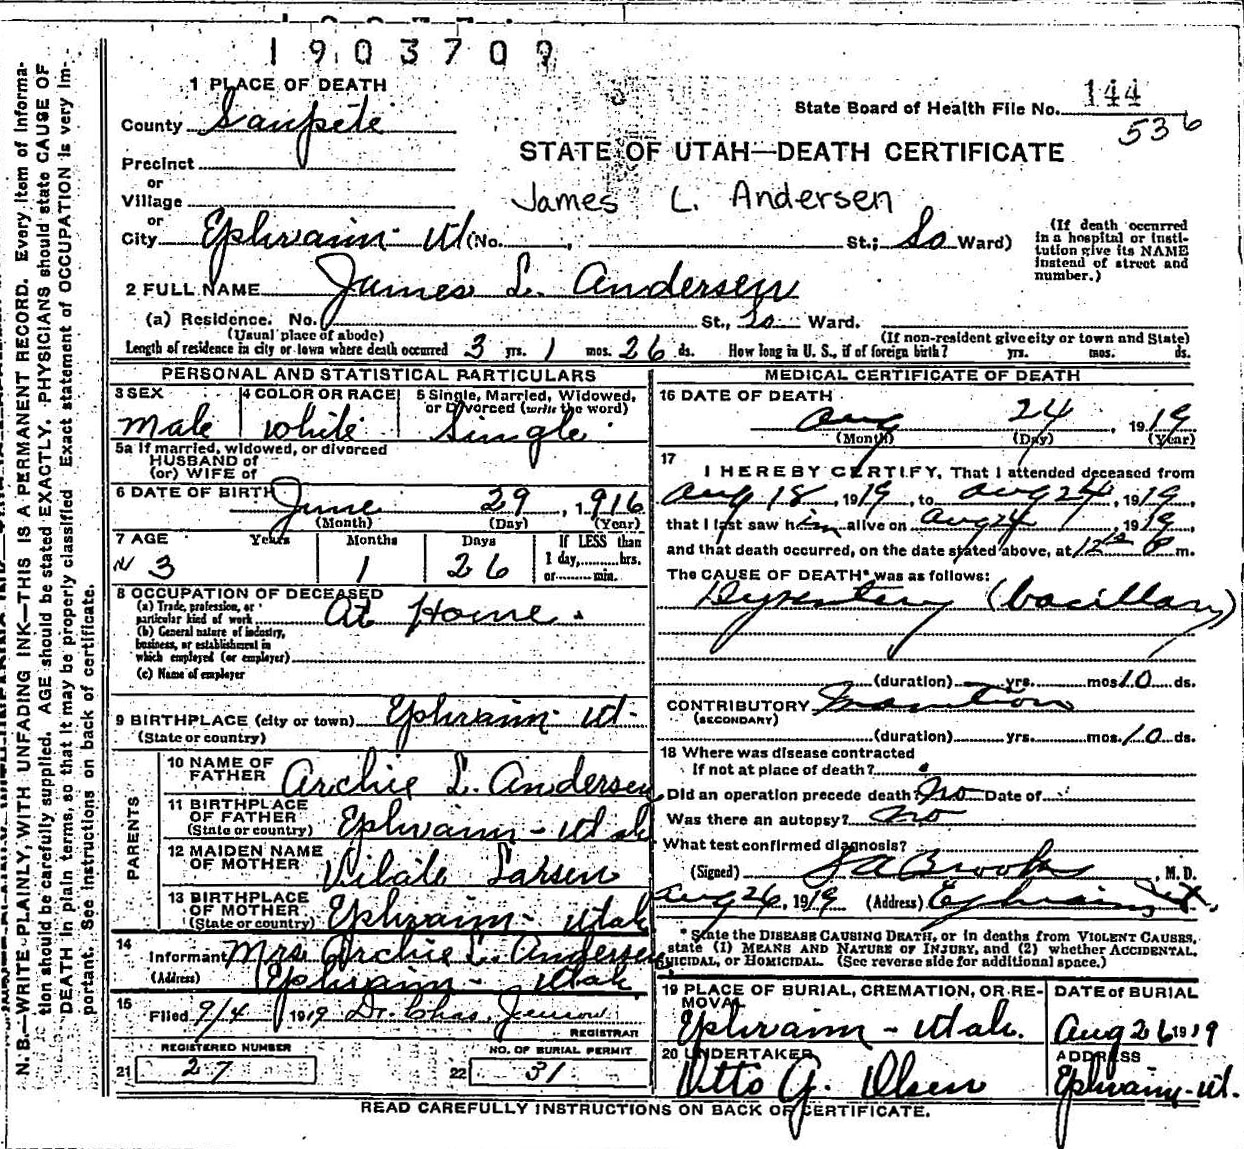 1903709
1 PLACE OF DEATH
County Sanpete
State Board of Health File No. 144
536
Precinct
or
Village
or
STATE OF UTAH—DEATH CERTIFICATE
James L. Andersen
City Ephraim Ut (No. , St.; So Ward)
(If death occurred in a hospital or institution give its NAME instead of street and number.)
2 FULL NAME James L. Andersen
(a) Residence. No. St., So Ward.
(Usual place of abode) (If non-resident give city or town and State)
Length of residence in city or town where death occurred 3 yrs. 1 mos. 26 ds. How long in U. S., if of foreign birth? yrs. mos. ds.
PERSONAL AND STATISTICAL PARTICULARS
3 SEX 4 COLOR OR RACE 5 Single, Married, Widowed, or Divorced (write the word)
Male White Single
5a If married, widowed, or divorced
HUSBAND of
(or) WIFE of
6 DATE OF BIRTH June 29, 1916
(Month) (Day) (Year)
7 AGE Years Months Days If LESS than 1 day, hrs. or min.
3 1 26
8 OCCUPATION OF DECEASED
(a) Trade, profession, or particular kind of work At Home.
(b) General nature of industry, business, or establishment in which employed (or employer)
(c) Name of employer
9 BIRTHPLACE (city or town) Ephraim Ut.
(State or country)
PARENTS
10 NAME OF FATHER Archie L. Andersen
11 BIRTHPLACE OF FATHER Ephraim - Utah
(State or country)
12 MAIDEN NAME OF MOTHER Vilate Larsen
13 BIRTHPLACE OF MOTHER Ephraim - Utah
(State or country)
14
Informant Mrs Archie L. Andersen
(Address) Ephraim - Utah.
15
Filed 9/4 1919 Dr. Chas. Jenson
REGISTRAR
REGISTERED NUMBER NO. OF BURIAL PERMIT
21 27 22 31
MEDICAL CERTIFICATE OF DEATH
16 DATE OF DEATH
Aug 24, 1919
(Month) (Day) (Year)
17
I HEREBY CERTIFY, That I attended deceased from
Aug 18, 1919, to Aug 24, 1919,
that I last saw him alive on Aug 24, 1919,
and that death occurred, on the date stated above, at 12 P m.
The CAUSE OF DEATH* was as follows:
Dysentery (bacillary)
(duration) yrs. mos. 10 ds.
CONTRIBUTORY Inanition
(SECONDARY)
(duration) yrs. mos. 10 ds.
18 Where was disease contracted
If not at place of death?
Did an operation precede death? No Date of
Was there an autopsy? No
What test confirmed diagnosis?
(Signed) Brooks, M. D.
Aug 26, 1919 (Address) Ephraim, Ut.
* State the DISEASE CAUSING DEATH, or in deaths from VIOLENT CAUSES,
state (1) MEANS AND NATURE OF INJURY, and (2) whether ACCIDENTAL,
SUICIDAL, OR HOMICIDAL. (See reverse side for additional space.)
19 PLACE OF BURIAL, CREMATION, OR REMOVAL DATE of BURIAL
Ephraim - Utah. Aug 26 1919
20 UNDERTAKER ADDRESS
Otto G. Olsen Ephraim - Ut.
READ CAREFULLY INSTRUCTIONS ON BACK OF CERTIFICATE.
N. B.—WRITE PLAINLY, WITH UNFADING INK—THIS IS A PERMANENT RECORD. Every item of informa-
tion should be carefully supplied. AGE should be stated EXACTLY. PHYSICIANS should state CAUSE OF
DEATH in plain terms, so that it may be properly classified. Exact statement of OCCUPATION is very im-
portant. See instructions on back of certificate.